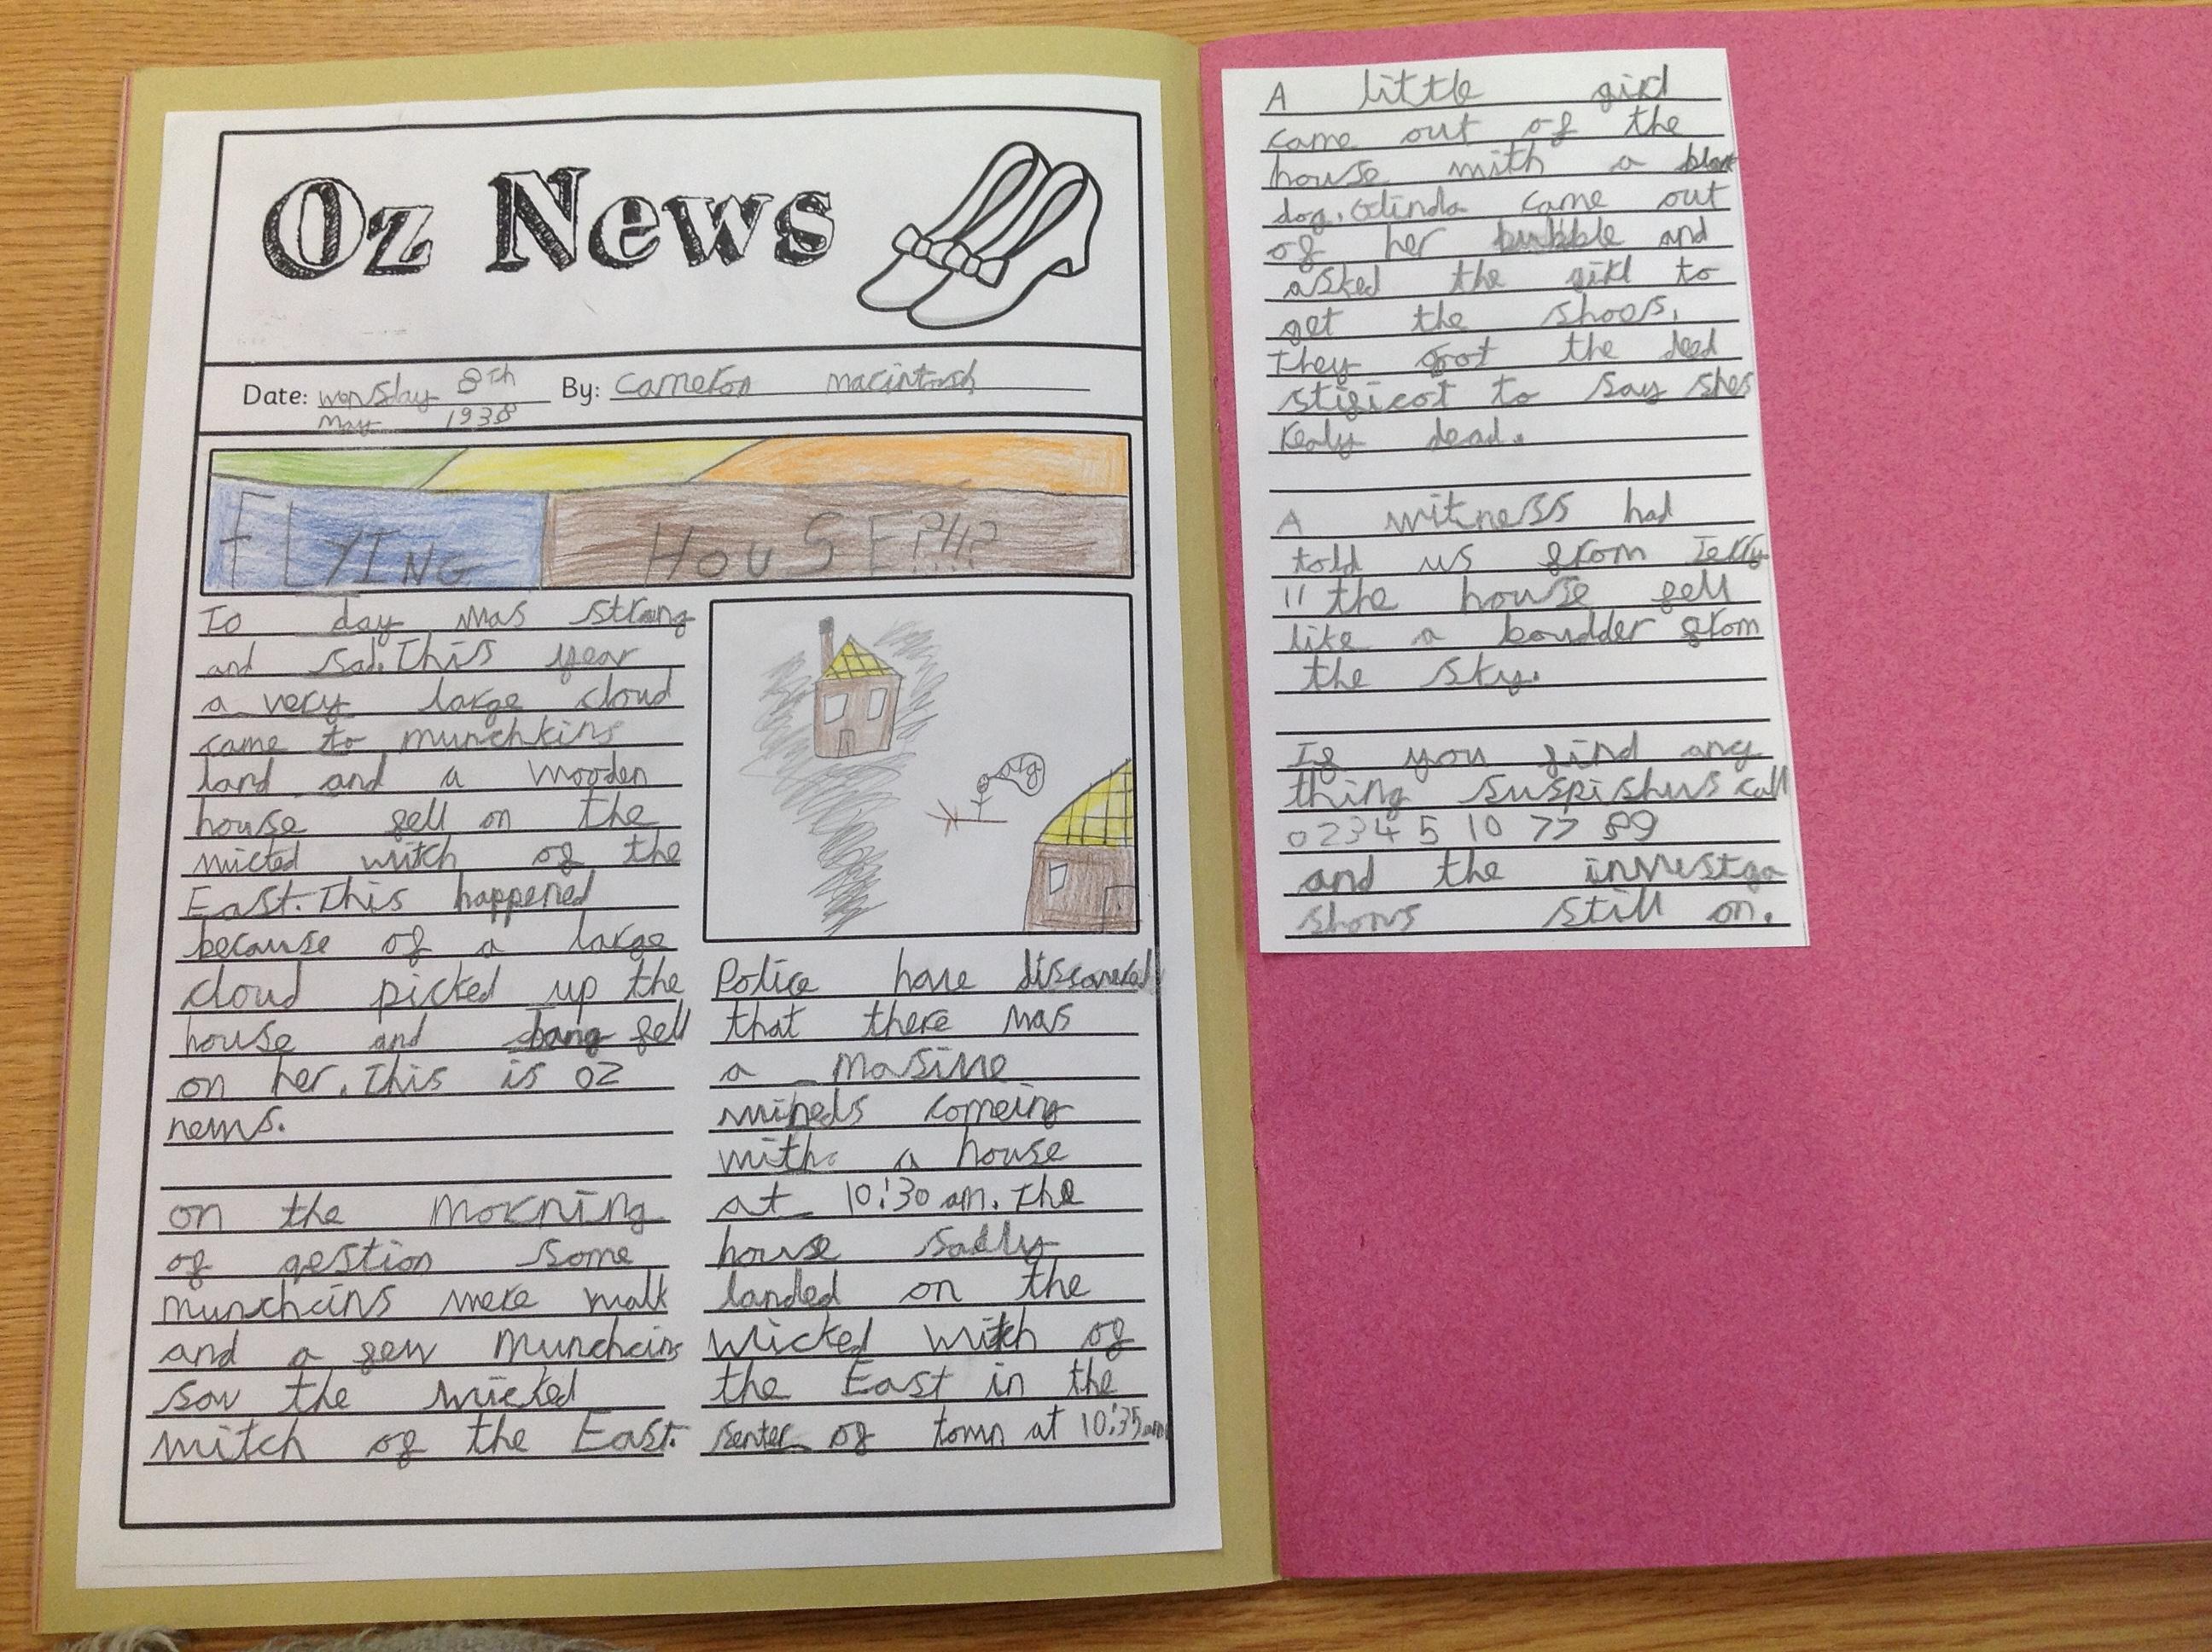 Oz News
Date: wensday 8th By: Cameron macintosh
May 1938
FLYING HOUSE?!!?
To day was strang
and sad. This year
a very large cloud
came to munchkins
land and a wooden
house fell on the
wicted witch of the
East. This happened
because of a large
cloud picked up the
house and bang fell
on her. This is oz
news.
on the morning
of qestion some
munchcins were walk
and a few munchcins
sow the wicted
witch of the East.
arg
Police have discovered
that there was
a masive
comeing
with a house
at 10:30 am. The
house sadly
landed on the
wicked witch of
the East in the
senter of town at 10:35am
A little girl
came out of the
house with a black
dog. Glinda came out
of her bubble and
asked the girl to
get the shoes.
They got the ded
stificot to say shes
realy dead.
A witness had
told us from Jerry
"the house fell
like a boudder from
the sky.
If you find any
thing suspishus call
0234 5 10 77 89
and the investga
shons still on.